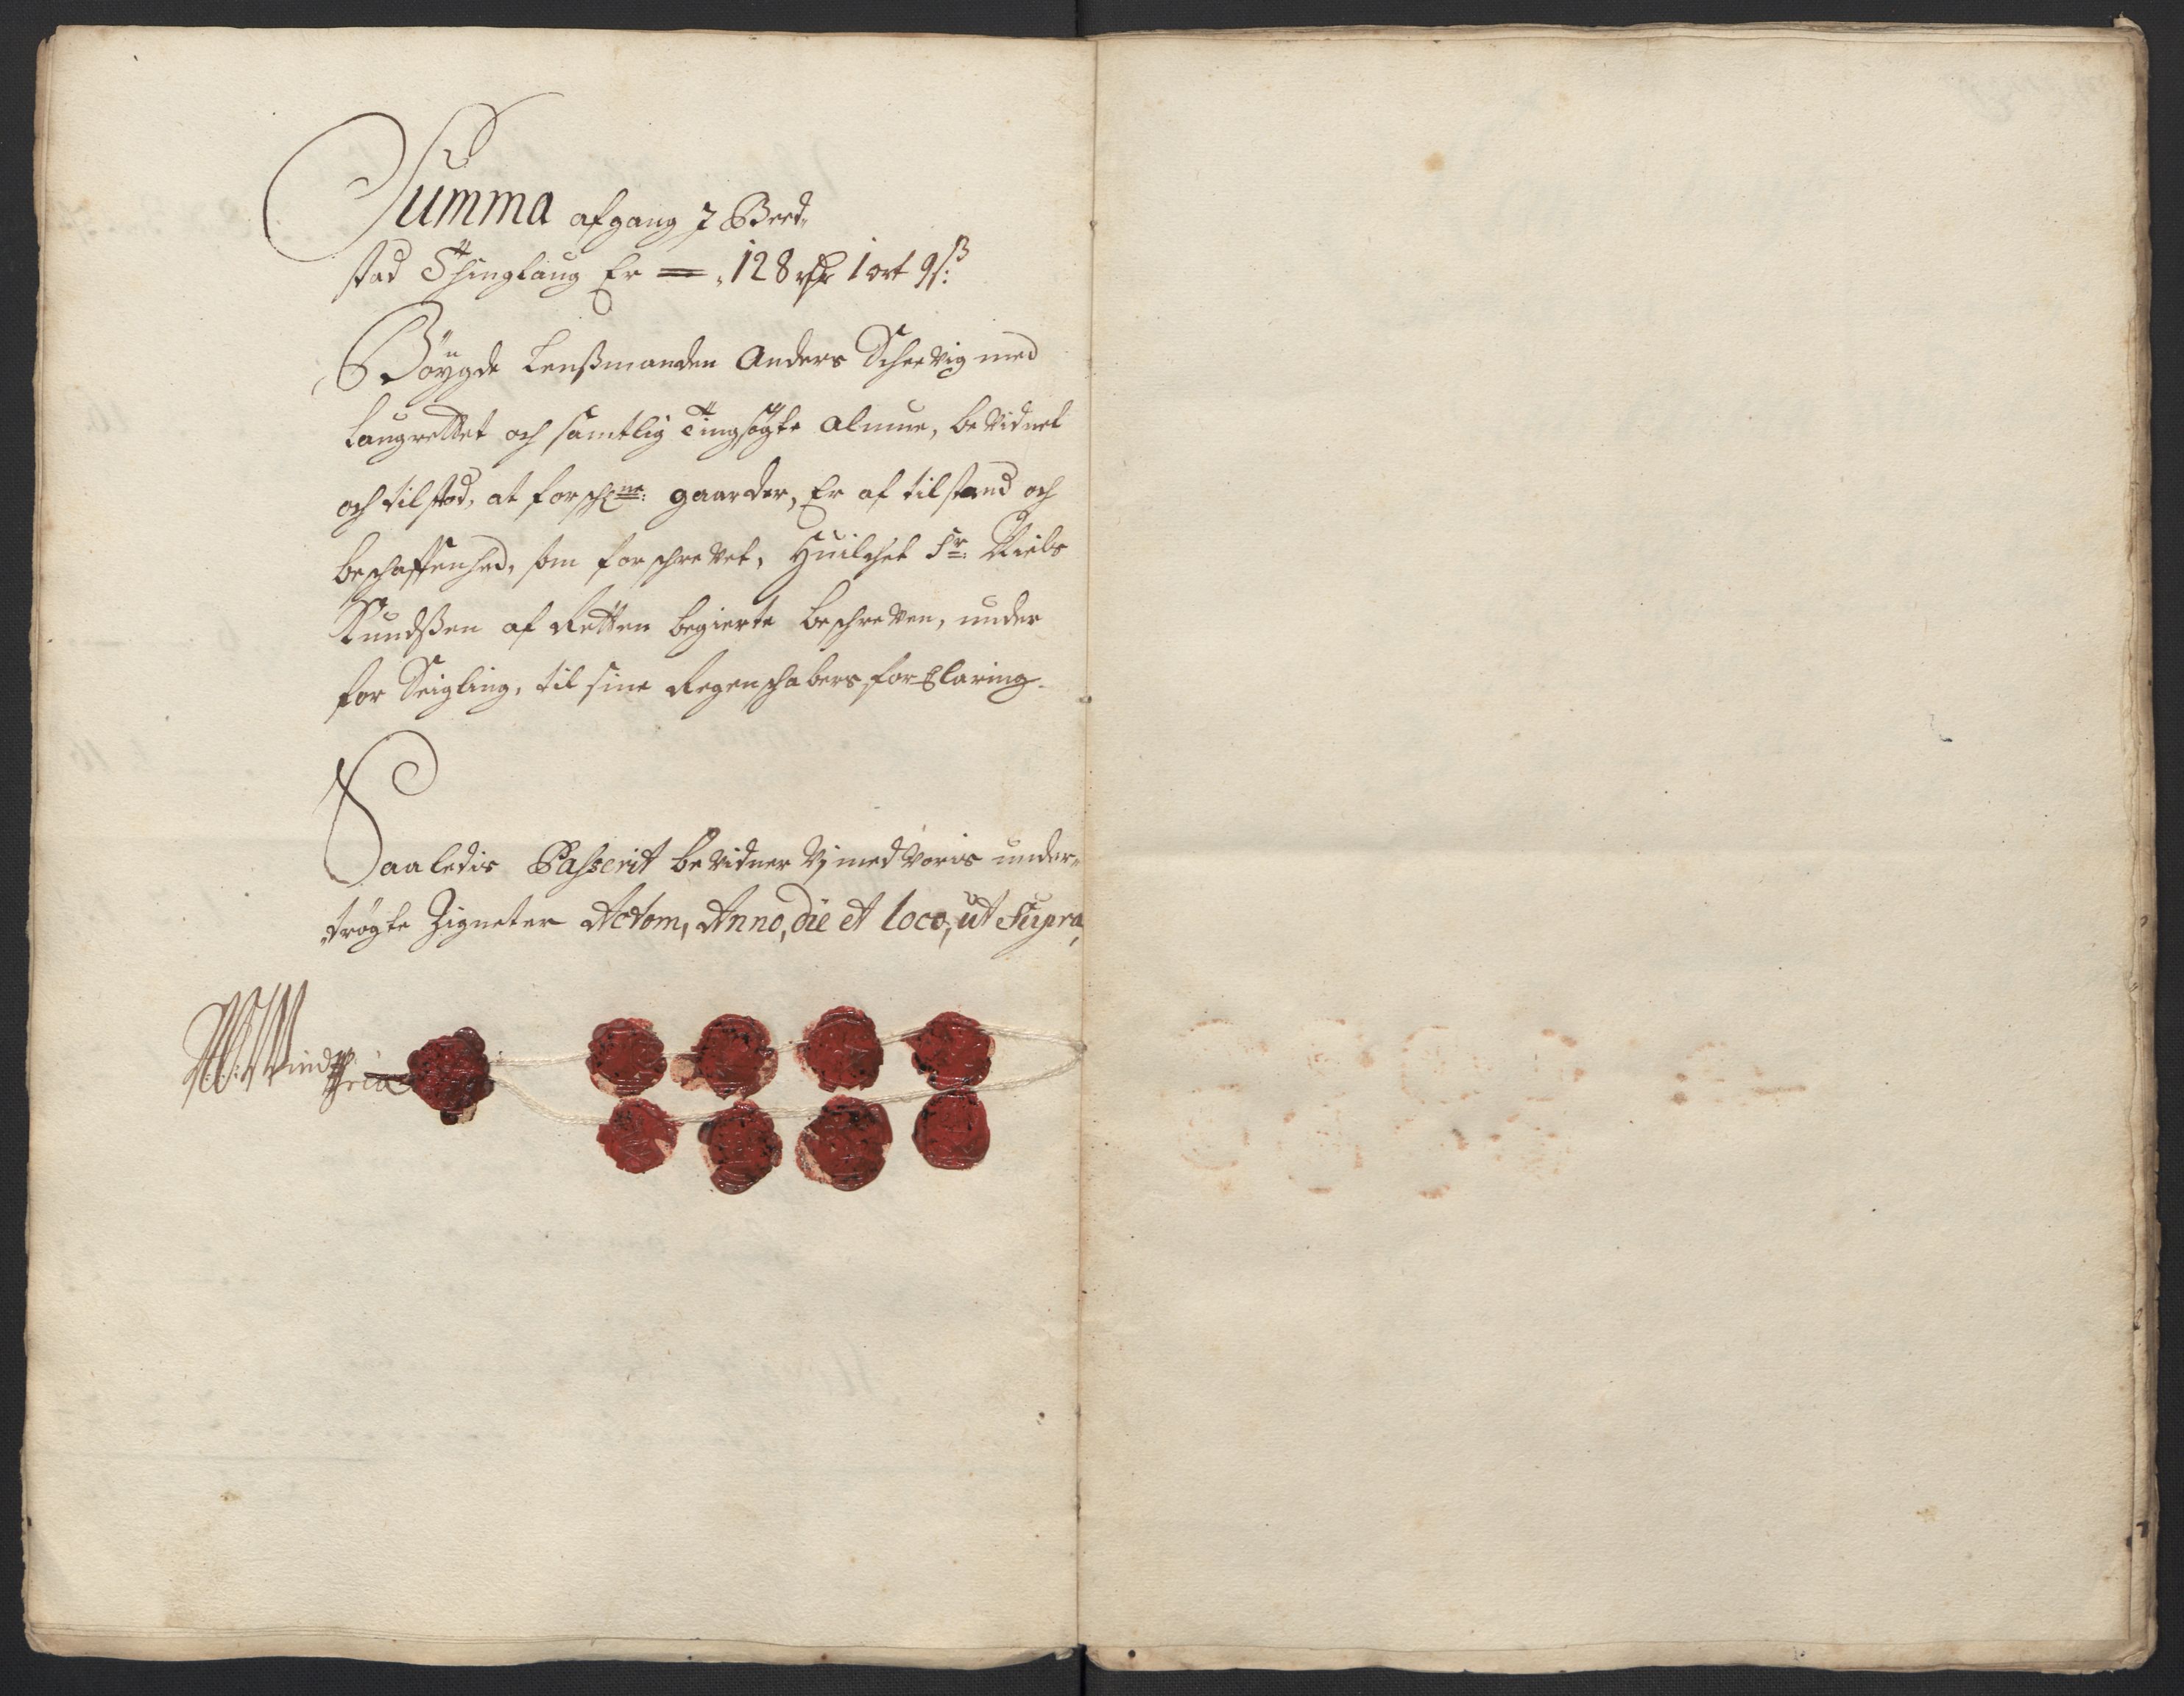 Summa afgang J Beed-
stad Thinglaug Er — 128 rdr 1 ort 9 s:
Böygde Lensmanden Anders Scheevig med
Laugrettet och samtlig Tingsøgte Almue, be vidnet
och tilstod, at forschne: gaarder, Er af tilstand och
beschaffenhed, som forschrevet, Huilchet Sr: Niels
Knudssen af Retten begierte beschreven, under
for Seigling, til sine Regenschabers forclaring.
Saaledis Passerit be vidner Vj med voris under-
trøgte Zigneter Actom, Anno, die et loco, ut Supra,